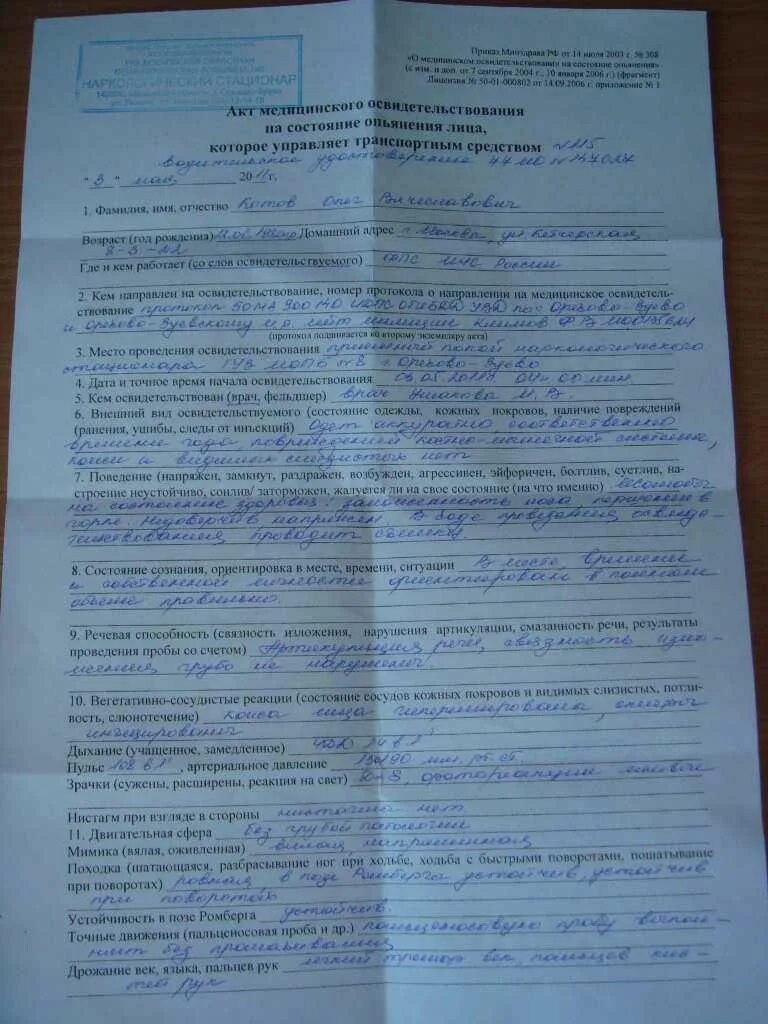 НАРКОЛОГИЧЕСКИЙ СТАЦИОНАР
Приказ Минздрава РФ от 14 июля 2003 г. № 308
«О медицинском освидетельствовании на состояние опьянения»
(с изм. и доп. от 7 сентября 2004 г., 10 января 2006 г.) (фрагмент)
Лицензия № 50-01-000802 от 14.09.2006 г. приложение № 1
Акт медицинского освидетельствования
на состояние опьянения лица,
которое управляет транспортным средством №115
водительское удостоверение 44 МО №
" 3 " мая 2011 г.
1. Фамилия, имя, отчество Котов Олег Вячеславович
Возраст (год рождения) Домашний адрес г. Москва, ул. Кетчерская
8-3-
Где и кем работает (со слов освидетельствуемого) ФПС МЧС России
2. Кем направлен на освидетельствование, номер протокола о направлении на медицинское освидетель-
ствование протокол 50 МА УВД по г. Орехово-Зуево
и Орехово-Зуевскому лейт. милиции Климов
(протокол подшивается ко второму экземпляру акта)
3. Место проведения освидетельствования приемный покой наркологического
стационара ГУЗ МОПБ №8 г. Орехово-Зуево
4. Дата и точное время начала освидетельствования 03.05.2011г. 04ч. 00 мин.
5. Кем освидетельствован (врач, фельдшер) врач
6. Внешний вид освидетельствуемого (состояние одежды, кожных покровов, наличие повреждений
(ранения, ушибы, следы от инъекций) Одет аккуратно, соответственно
времени года, повреждений костно-мышечной системы,
кожи и видимых слизистых нет
7. Поведение (напряжен, замкнут, раздражен, возбужден, агрессивен, эйфоричен, болтлив, суетлив, на-
строение неустойчиво, сонлив/ заторможен, жалуется ли на свое состояние (на что именно)
на состояние здоровья: заложенность носа, першение в
горле. Недоверчив, напряжен. В ходе проведения освиде-
тельствования проводит
8. Состояние сознания, ориентировка в месте, времени, ситуации В месте, времени
и собственной личности ориентирован в полном
объеме правильно
9. Речевая способность (связность изложения, нарушения артикуляции, смазанность речи, результаты
проведения пробы со счетом) Артикуляция речи, связность изло-
жения грубо не нарушены
10. Вегетативно-сосудистые реакции (состояние сосудов кожных покровов и видимых слизистых, потли-
вость, слюнотечение) кожа лица гиперемирована, склеры
инъецированы
Дыхание (учащенное, замедленное) ЧДД в 1'
Пульс 108 в 1' , артериальное давление мм. рт. ст.
Зрачки (сужены, расширены, реакция на свет) D=S, фотореакция
Нистагм при взгляде в стороны нистагма нет
11. Двигательная сфера без грубой патологии
Мимика (вялая, оживленная) вялая, напряженная
Походка (шатающаяся, разбрасывание ног при ходьбе, ходьба с быстрыми поворотами, пошатывание
при поворотах) ровная, в позе Ромберга устойчив, устойчив
при поворотах
Устойчивость в позе Ромберга устойчив.
Точные движения (пальценосовая проба и др.) пальценосовую пробу выпол-
няет без промахивания
Дрожание век, языка, пальцев рук легкий тремор век, пальцев кис-
тей рук